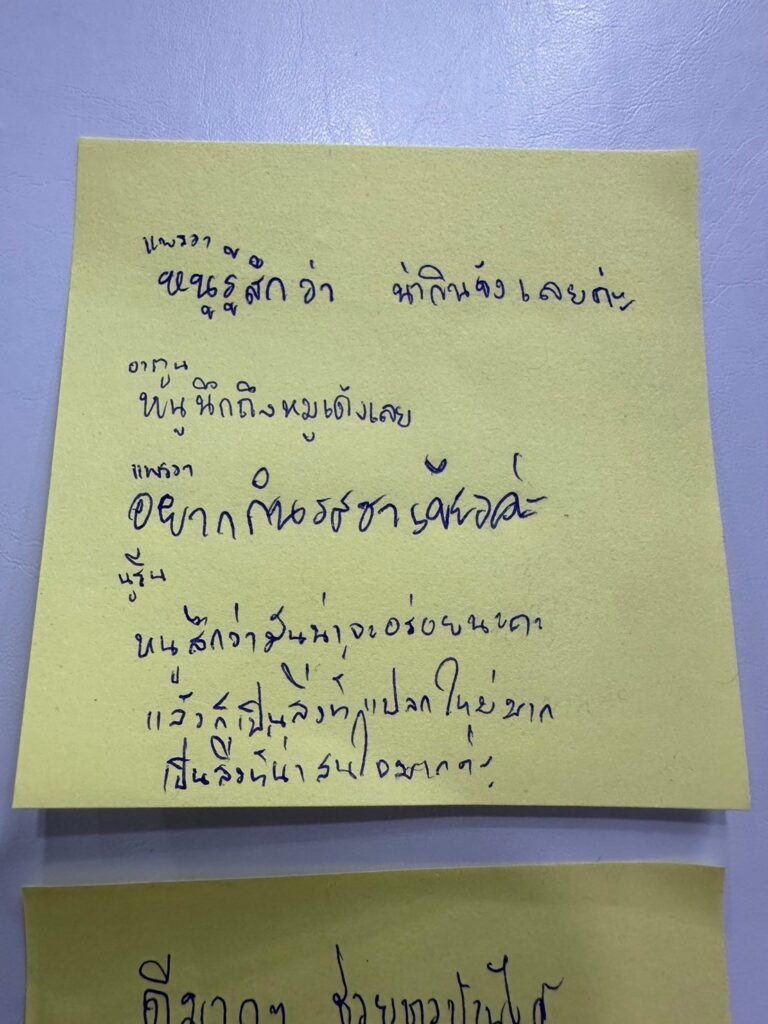 แพรวา
หนูรู้สึกว่า น่ากินจังเลยค่ะ
หนูนึกถึงหมูเด้งเลย
แพรวา
อยากกินรสชาเขียวค่ะ
หนูสึกว่ามันน่าจะอร่อยนะคะ
แล้วก็เป็นสิ่งที่แปลกใหม่มาก
เป็นสิ่งที่น่าสนใจมากค่ะ
ดีมากๆ ช่วยชาวบ้านได้